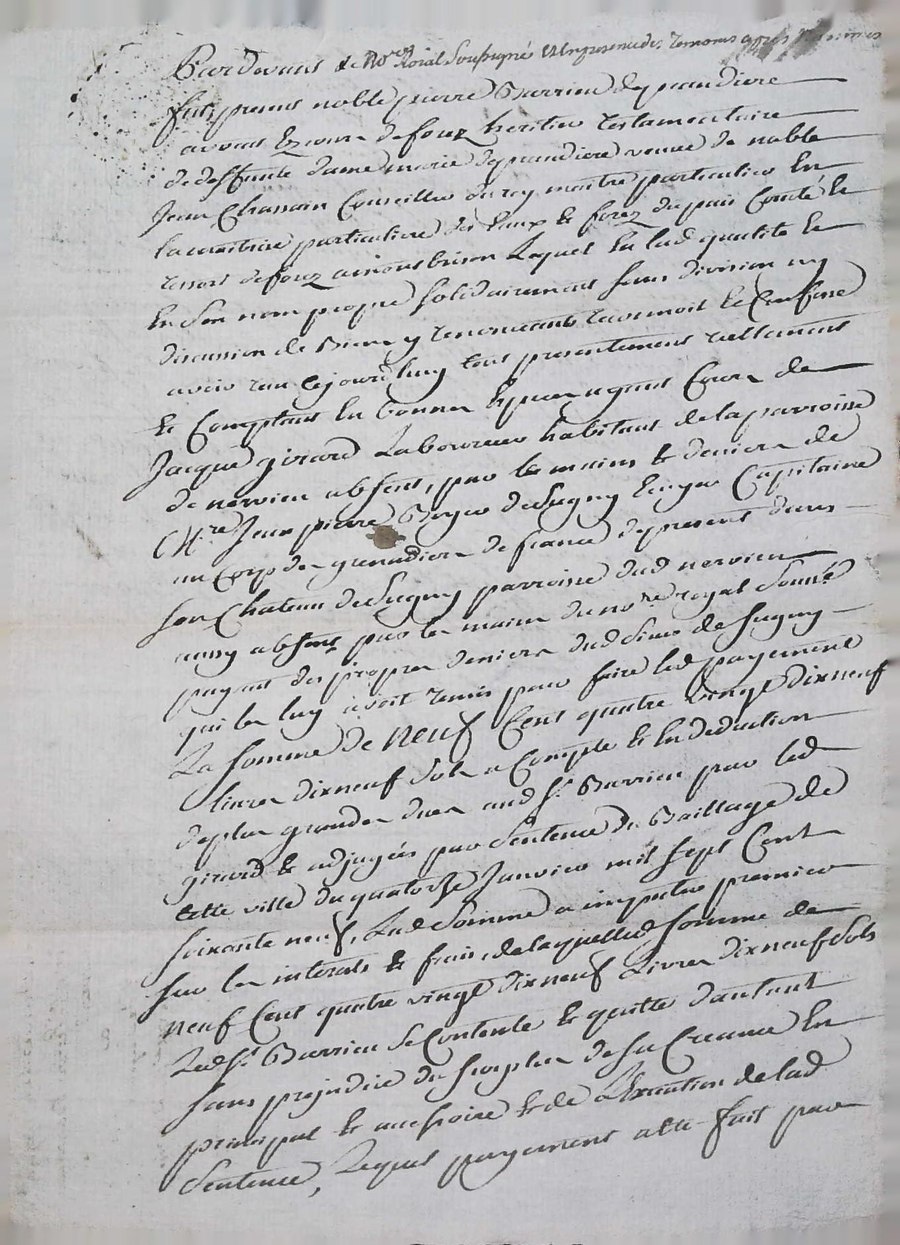 Pardevant le No.re Roial Soussigné Et En presence des Temoins après nommés
fut present noble pierre Barrieu depraudiere
avocat Ez cours de forez heritier Testamentaire
de deffunte dame marie depraudiere veuve de noble
Jean Chassain Conseiller du roy maitre particulier En
la maitrise particuliere des Eaux & forez du pais Comté &
ressort de forez a montbrison Lequel En lad. qualité &
En son nom propre solidairement sans division ny
discussion de Biens y renonceant reconnoit & Confesse
avoir reçu cejourd'huy tout presentement reellement
& Comptant En bonnes Especes ayant Cours de
Jacque girard Laboureur habitant de la parroisse
de nervieu absent, par les mains & deniers de
M.re Jean pierre de Sugny Ecuyer Capitaine
au Corps des grenadiers de france de present dans
son Chateau de Sugny parroisse dud. nervieu
aussy absent par les mains du no.re royal Sousné
payant des propres deniers dud. Sieur de Sugny
qui les luy avoit remis pour faire led. payement
La somme de neuf Cent quatre vingt dixneuf
livres dixneuf Sols a Compte & En deduction
de plus grandes dues aud. S.r Barrieu par led.
girard & adjugées par Sentence du Baillage de
cette ville du quatorze Janvier mil sept Cent
soixante neuf, Lad. Somme a imputer premier
sur les interets & frais, de laquelle d. somme de
neuf Cent quatre vingt dixneuf Livres dixneuf Sols
Led. S.r Barrieu se Contente & quitte d'autant
sans prejudice du surplus de sa Creance En
principal & accessoire & de L'Execution de lad.
Sentence, Lequel payement a été fait par